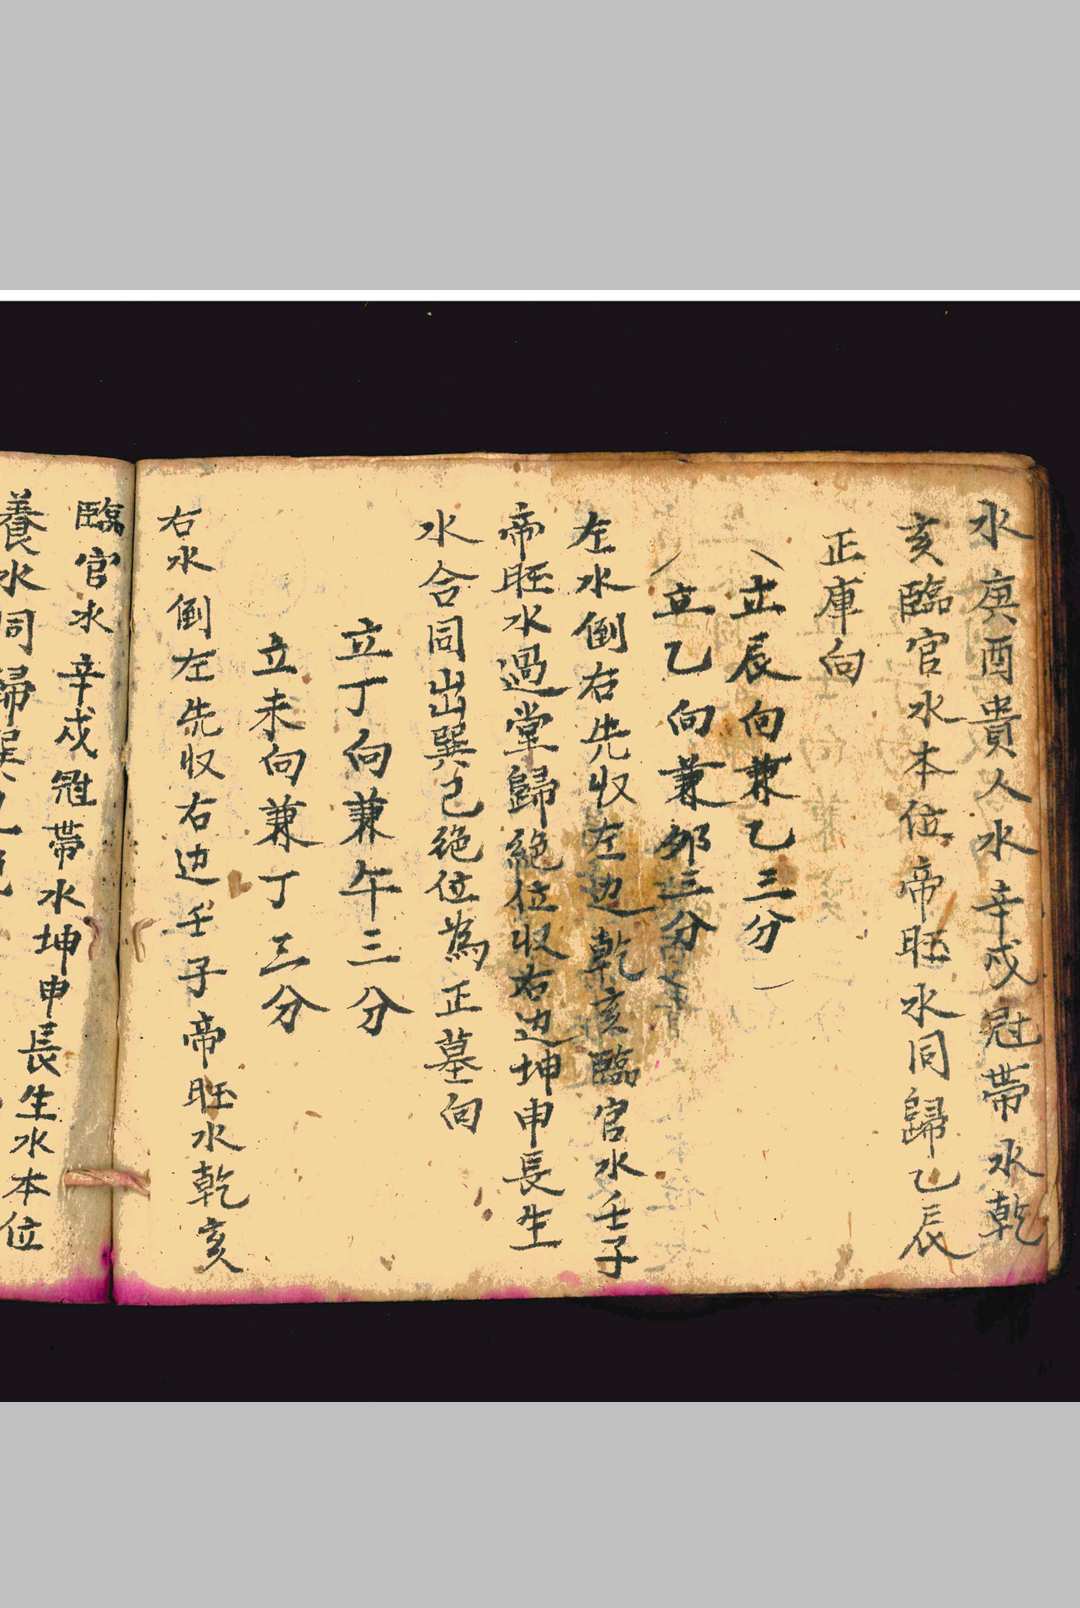 水庚酉貴人水辛戌冠帶水乾
亥臨官水本位帝旺水同歸乙辰
正庫向
立辰向兼乙三分
立乙向兼卯三分
左水倒右先收左边乾亥臨官水壬子
帝旺水過堂歸絕位收右边坤申長生
水合同出巽巳绝位為正墓向
立丁向兼午三分
立未向兼丁三分
右水倒左先収右边壬子帝旺水乾亥
臨官水辛戌冠帶水坤申長生水本位
養水同歸巽